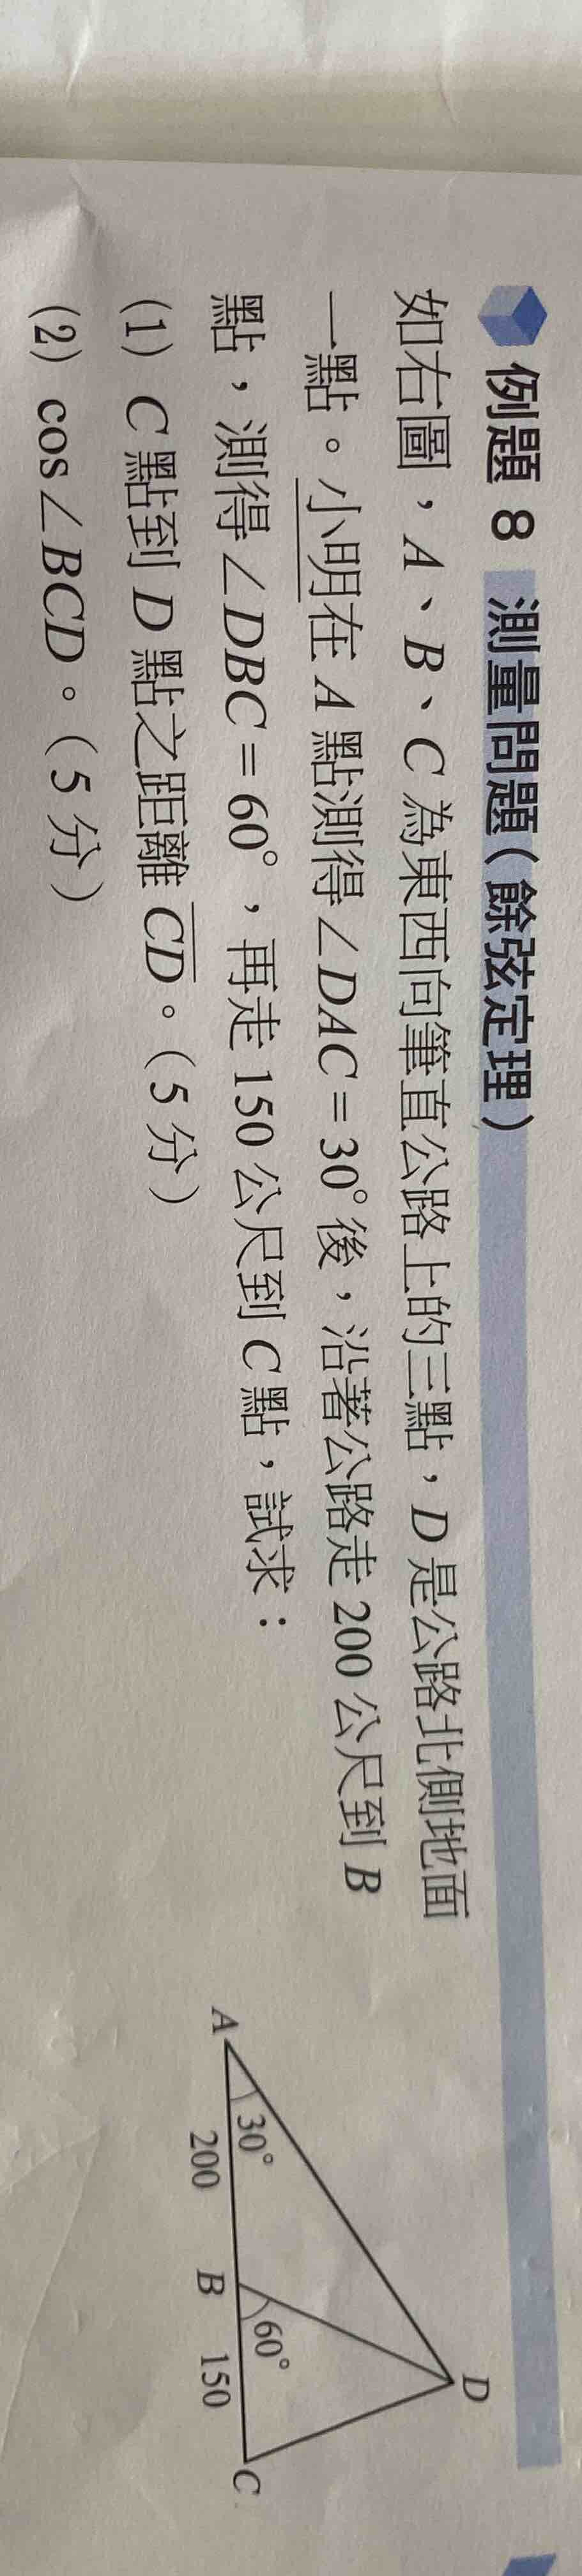 例題 8 測量問題(餘弦定理)
如右圖，A、B、C 為東西向筆直公路上的三點，D 是公路北側地面
一點。小明在 A 點測得∠DAC = 30°後，沿著公路走 200 公尺到 B
點，測得∠DBC = 60°，再走 150 公尺到 C 點，試求：
(1) C 點到 D 點之距離 CD。(5 分)
(2) cos∠BCD。(5 分)
D
A 30° 60° C
200 B 150